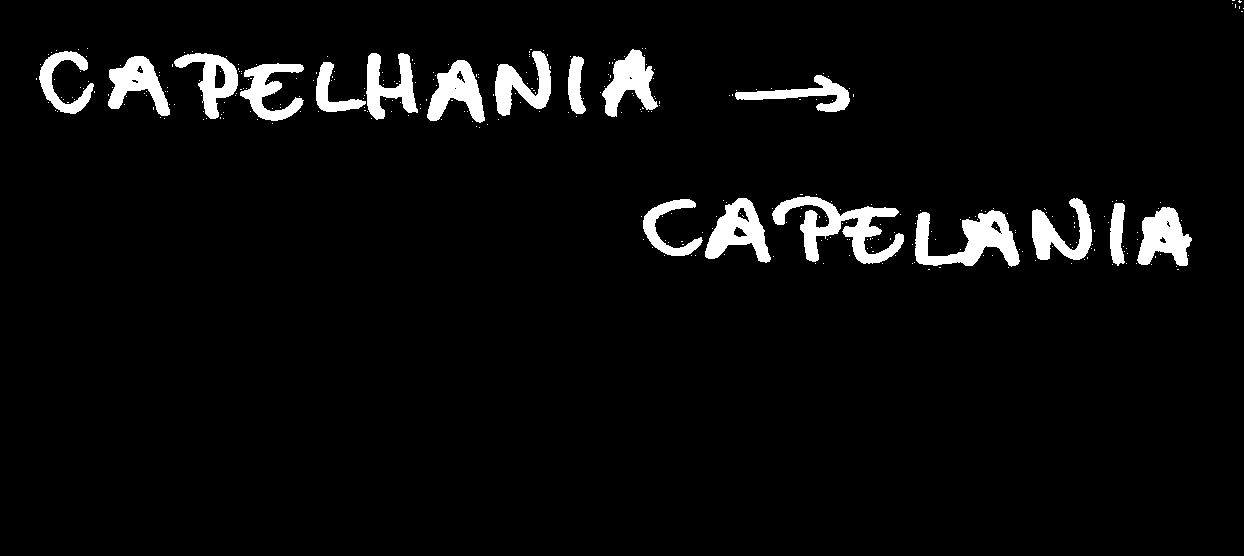 CAPELHANIA →
CAPELANIA